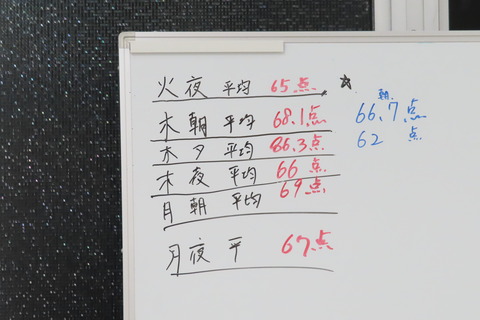 火夜 平均 65点
木朝 平均 68.1点
木夕 平均 66.3点
木夜 平均 66点
月朝 平均 69点
月夜 平 67点
朝
66.7点
62 点